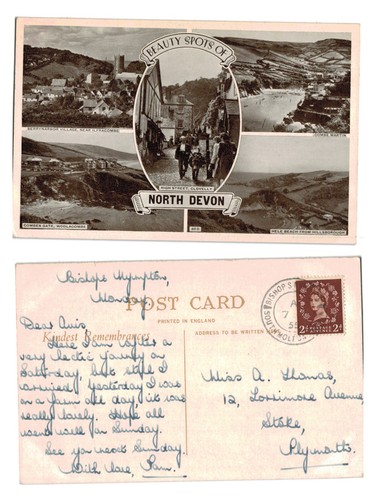 BEAUTY SPOTS OF
BERRYNARBOR VILLAGE, NEAR ILFRACOMBE
COMBE MARTIN
HIGH STREET, CLOVELLY
COMBES GATE, WOOLACOMBE
HELE BEACH FROM HILLSBOROUGH
NORTH DEVON
Bishops Nympton,
Monday
POST CARD
PRINTED IN ENGLAND
ADDRESS TO BE WRITTEN HERE
Kindest Remembrances
Dear Avis,
Here I am after a
very hectic journey on
Saturday, but still I
arrived, yesterday I was
on a farm all day, it was
really lovely. Hope all
went well for Sunday.
See you next Sunday.
With love, Pam.
BISHOP'S
SOUTH MOLTON
2d POSTAGE REVENUE 2d
Miss A. Thomas,
12, Lorrimore Avenue,
Stoke,
Plymouth.